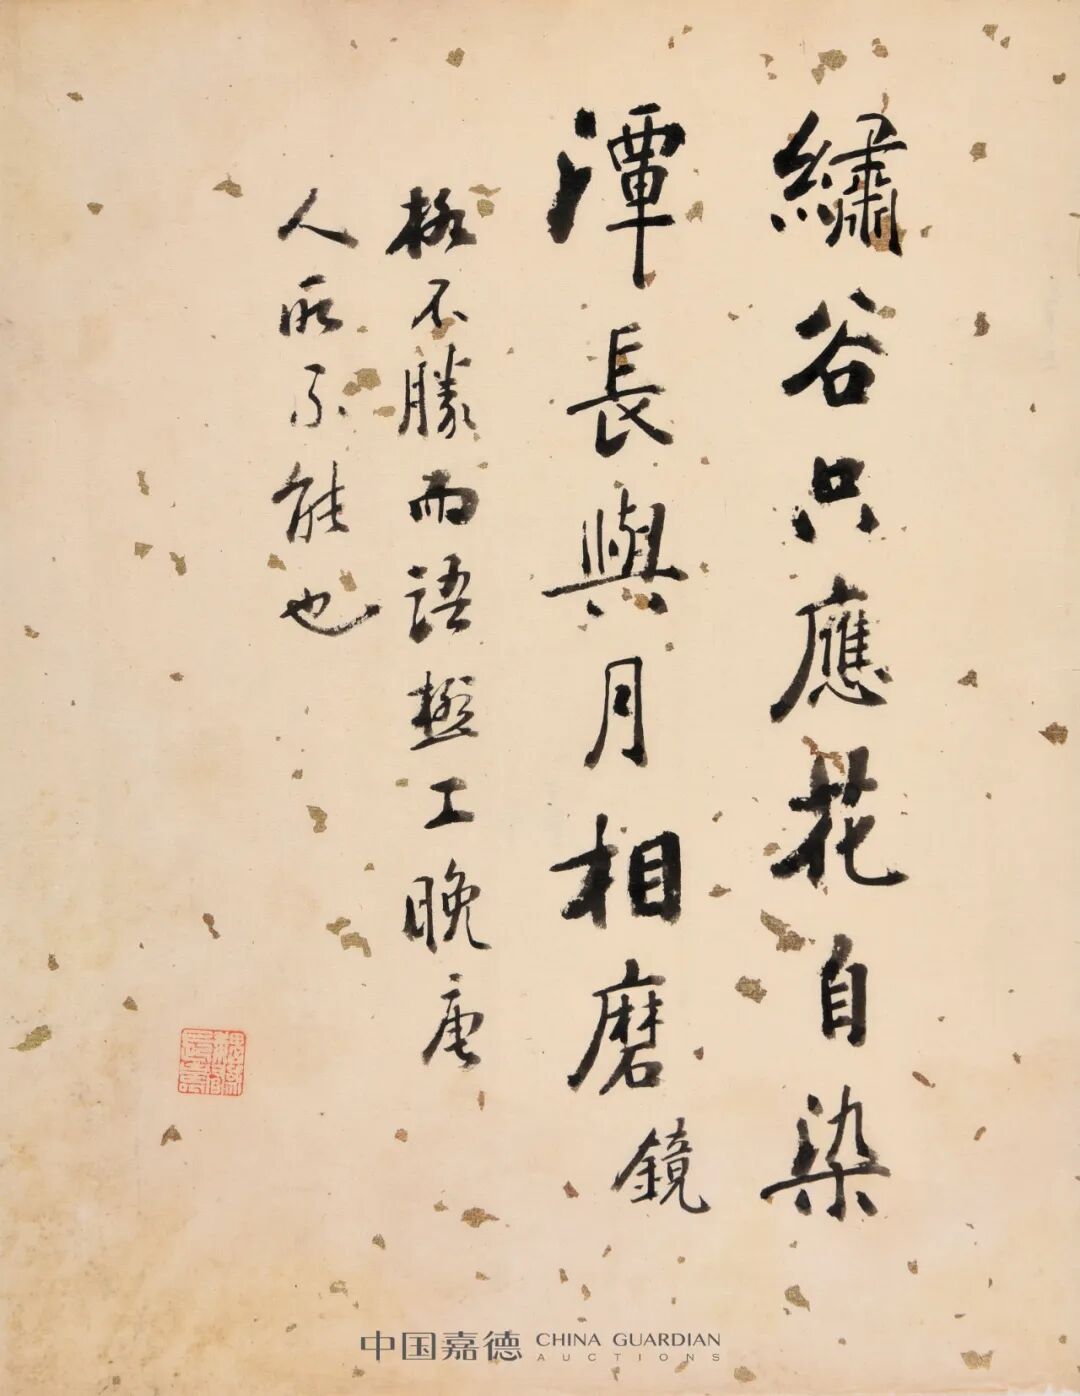 繡谷只應花自染
潭長與月相磨
鏡
格不勝而語極工晚唐
人所不能也
中国嘉德 CHINA GUARDIAN
AUCTIONS